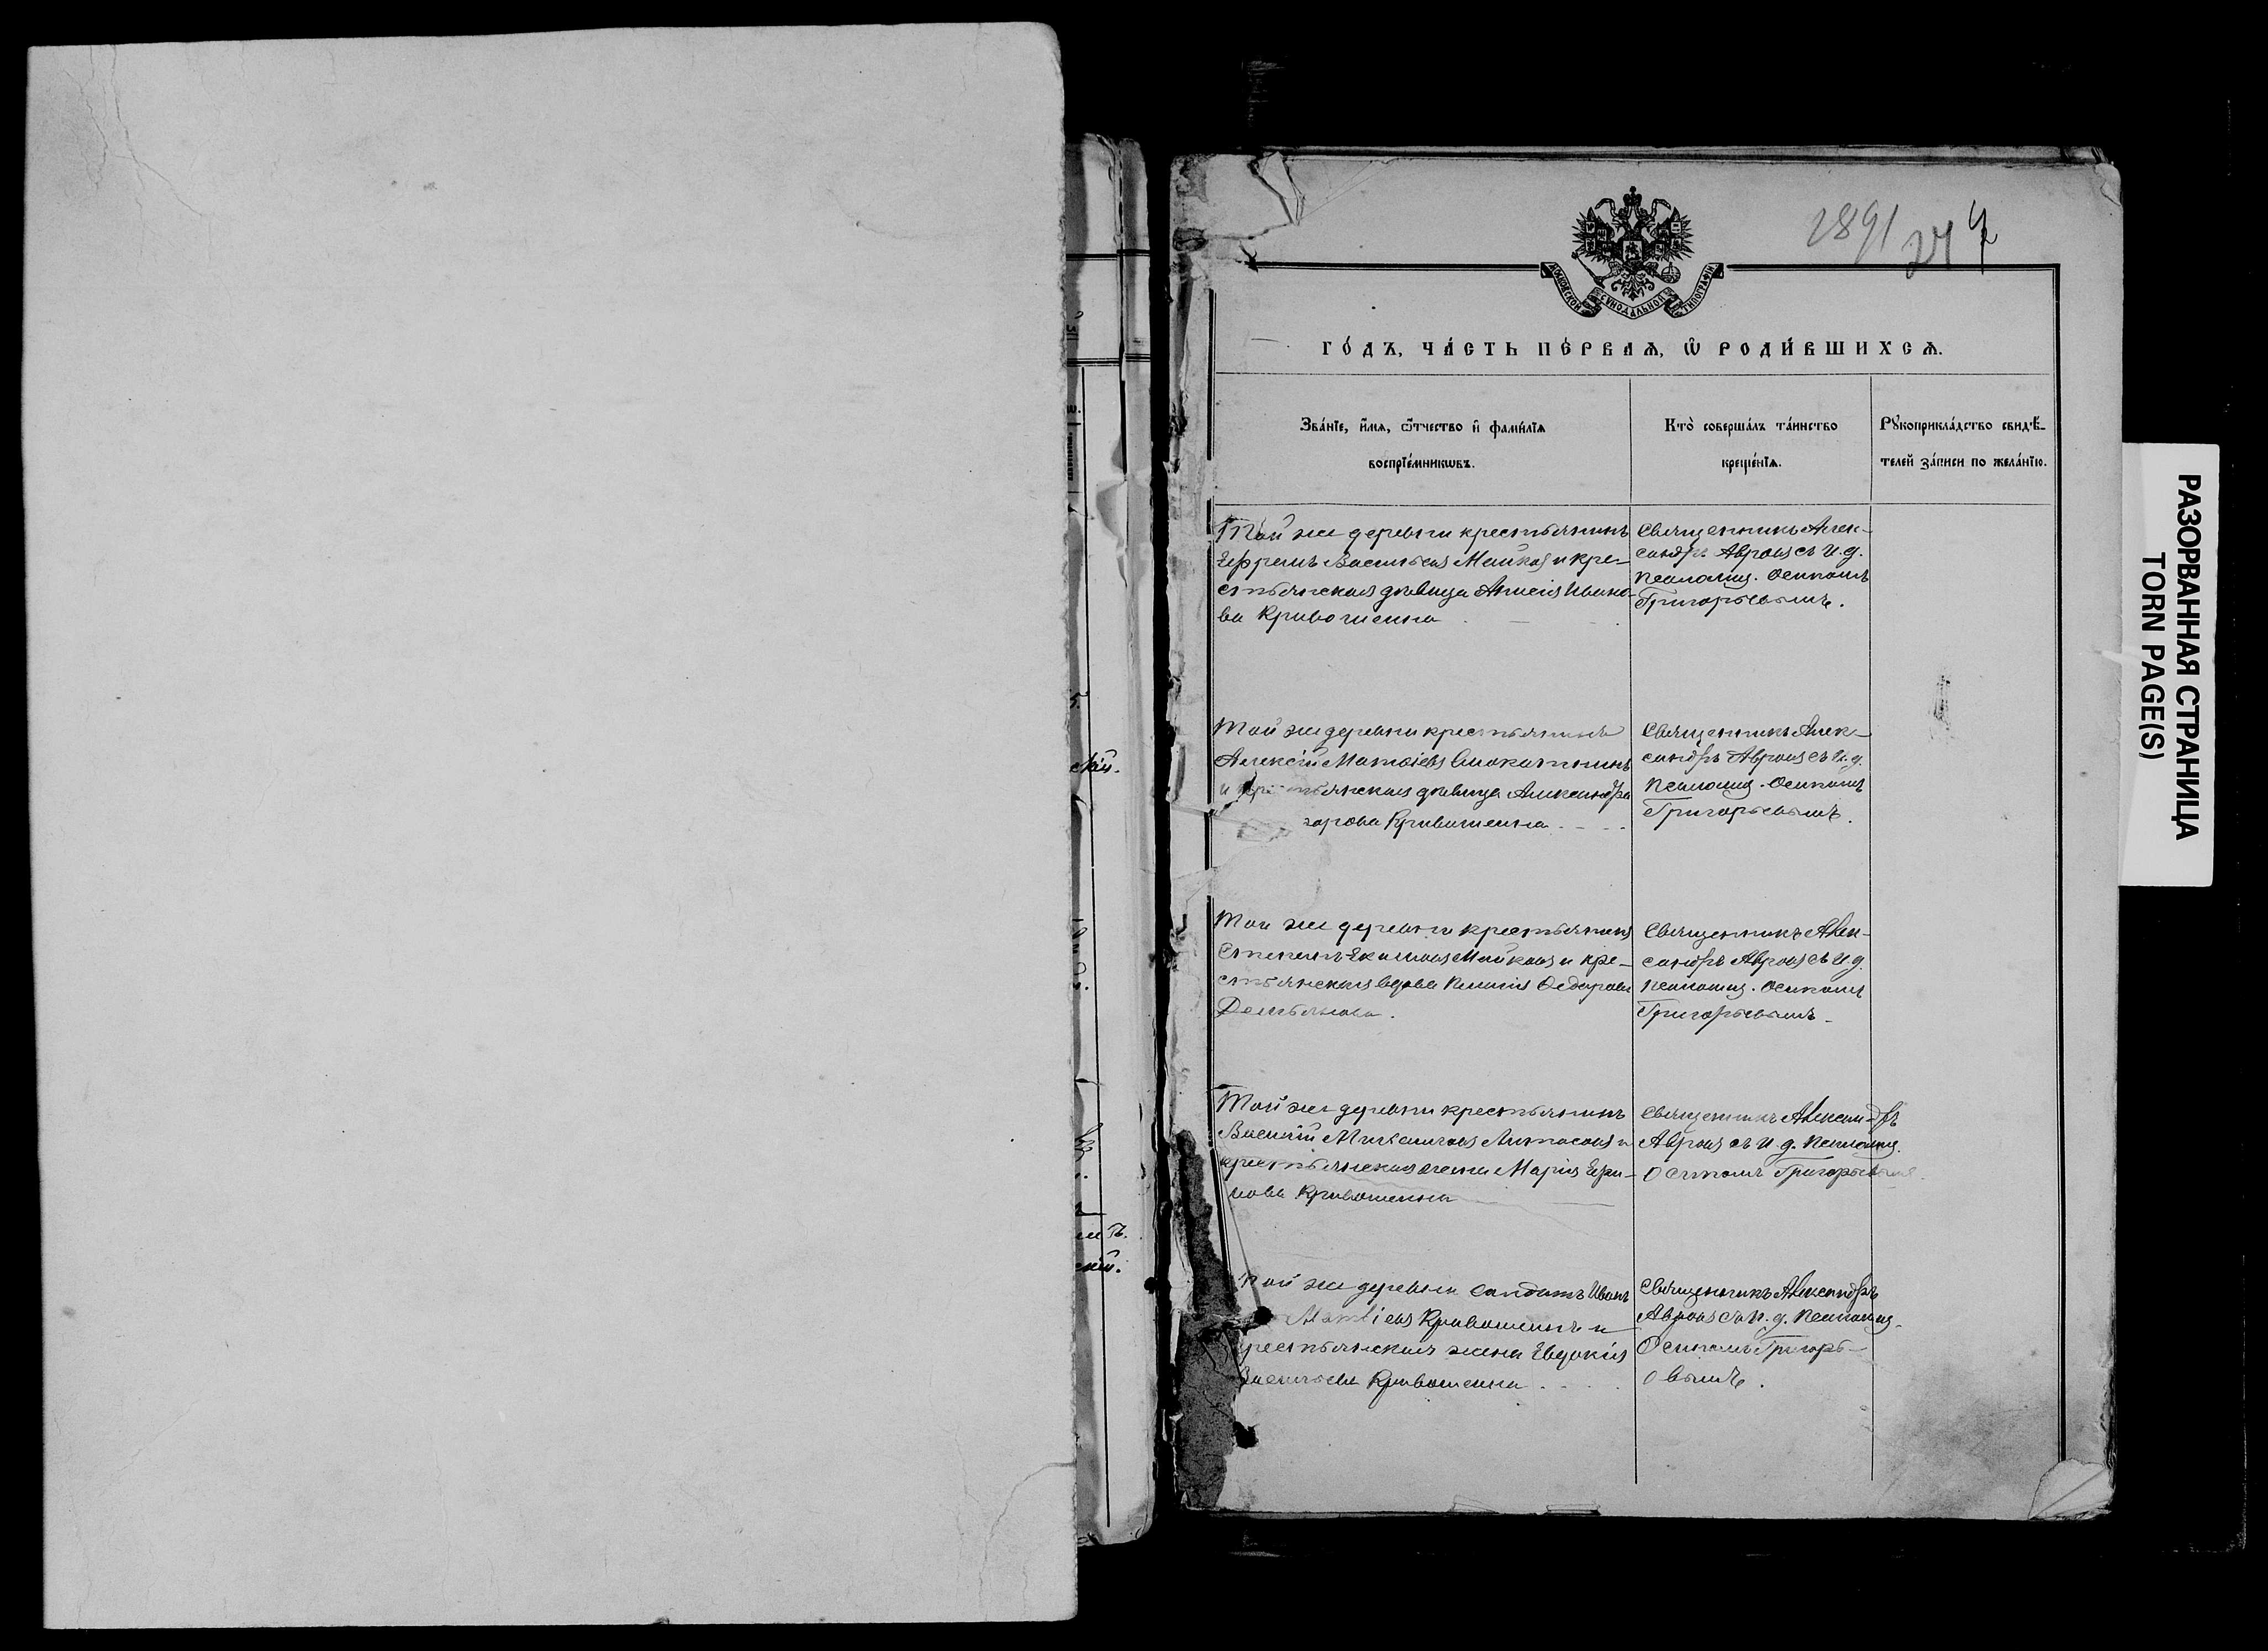 1891
МОСКОВСКОЙ СѴНОДАЛЬНОЙ ТИПОГРАФІИ
ГО́ДЪ, ЧА́СТЬ ПЕ́РВАѦ, Ѡ҆ РОДИ́ВШИХСѦ.
Зва́нїе, и҆́мѧ, ѻ҆́тчество и҆ фами́лїѧ
воспрїе́мникѡвъ.
Кто̀ соверша́лъ та́инство
креще́нїѧ.
Рꙋкоприкла́дство свидѣ́-
телей за́писи по жела́нїю.
Той же деревни крестьянинъ
Ефремъ Васильевъ Майковъ и кре-
стьянская дѣвица Ивано-
ва Кривошеина
Священникъ Алек-
сандръ Авровъ съ И. д.
псаломщ. Осипомъ
Григорьевымъ.
Той же деревни крестьянинъ
Алексій Матвіевъ
и крестьянская дѣвица Александра
Кривошеина
Священникъ Алек-
сандръ Авровъ съ И. д.
псаломщ. Осипомъ
Григорьевымъ.
Той же деревни крестьянинъ
Майковъ и кре-
стьянская вдова Ѳедорова
Демьянова.
Священникъ Алек-
сандръ Авровъ съ И. д.
псаломщ. Осипомъ
Григорьевымъ
Той же деревни крестьянинъ
Василій Михаиловъ и
крестьянская жена Марія
Кривошеина
Священникъ Александръ
Авровъ съ И. д. псаломщ.
Осипомъ Григорьевымъ.
Той же деревни солдатъ Иванъ
Матвіевъ Кривошеинъ и
крестьянская жена Евдокія
Васильева Кривошеина
Священникъ Александръ
Авровъ съ И. д. псаломщ.
Осипомъ Григорь-
евымъ.
РАЗОРВАННАЯ СТРАНИЦА
TORN PAGE(S)